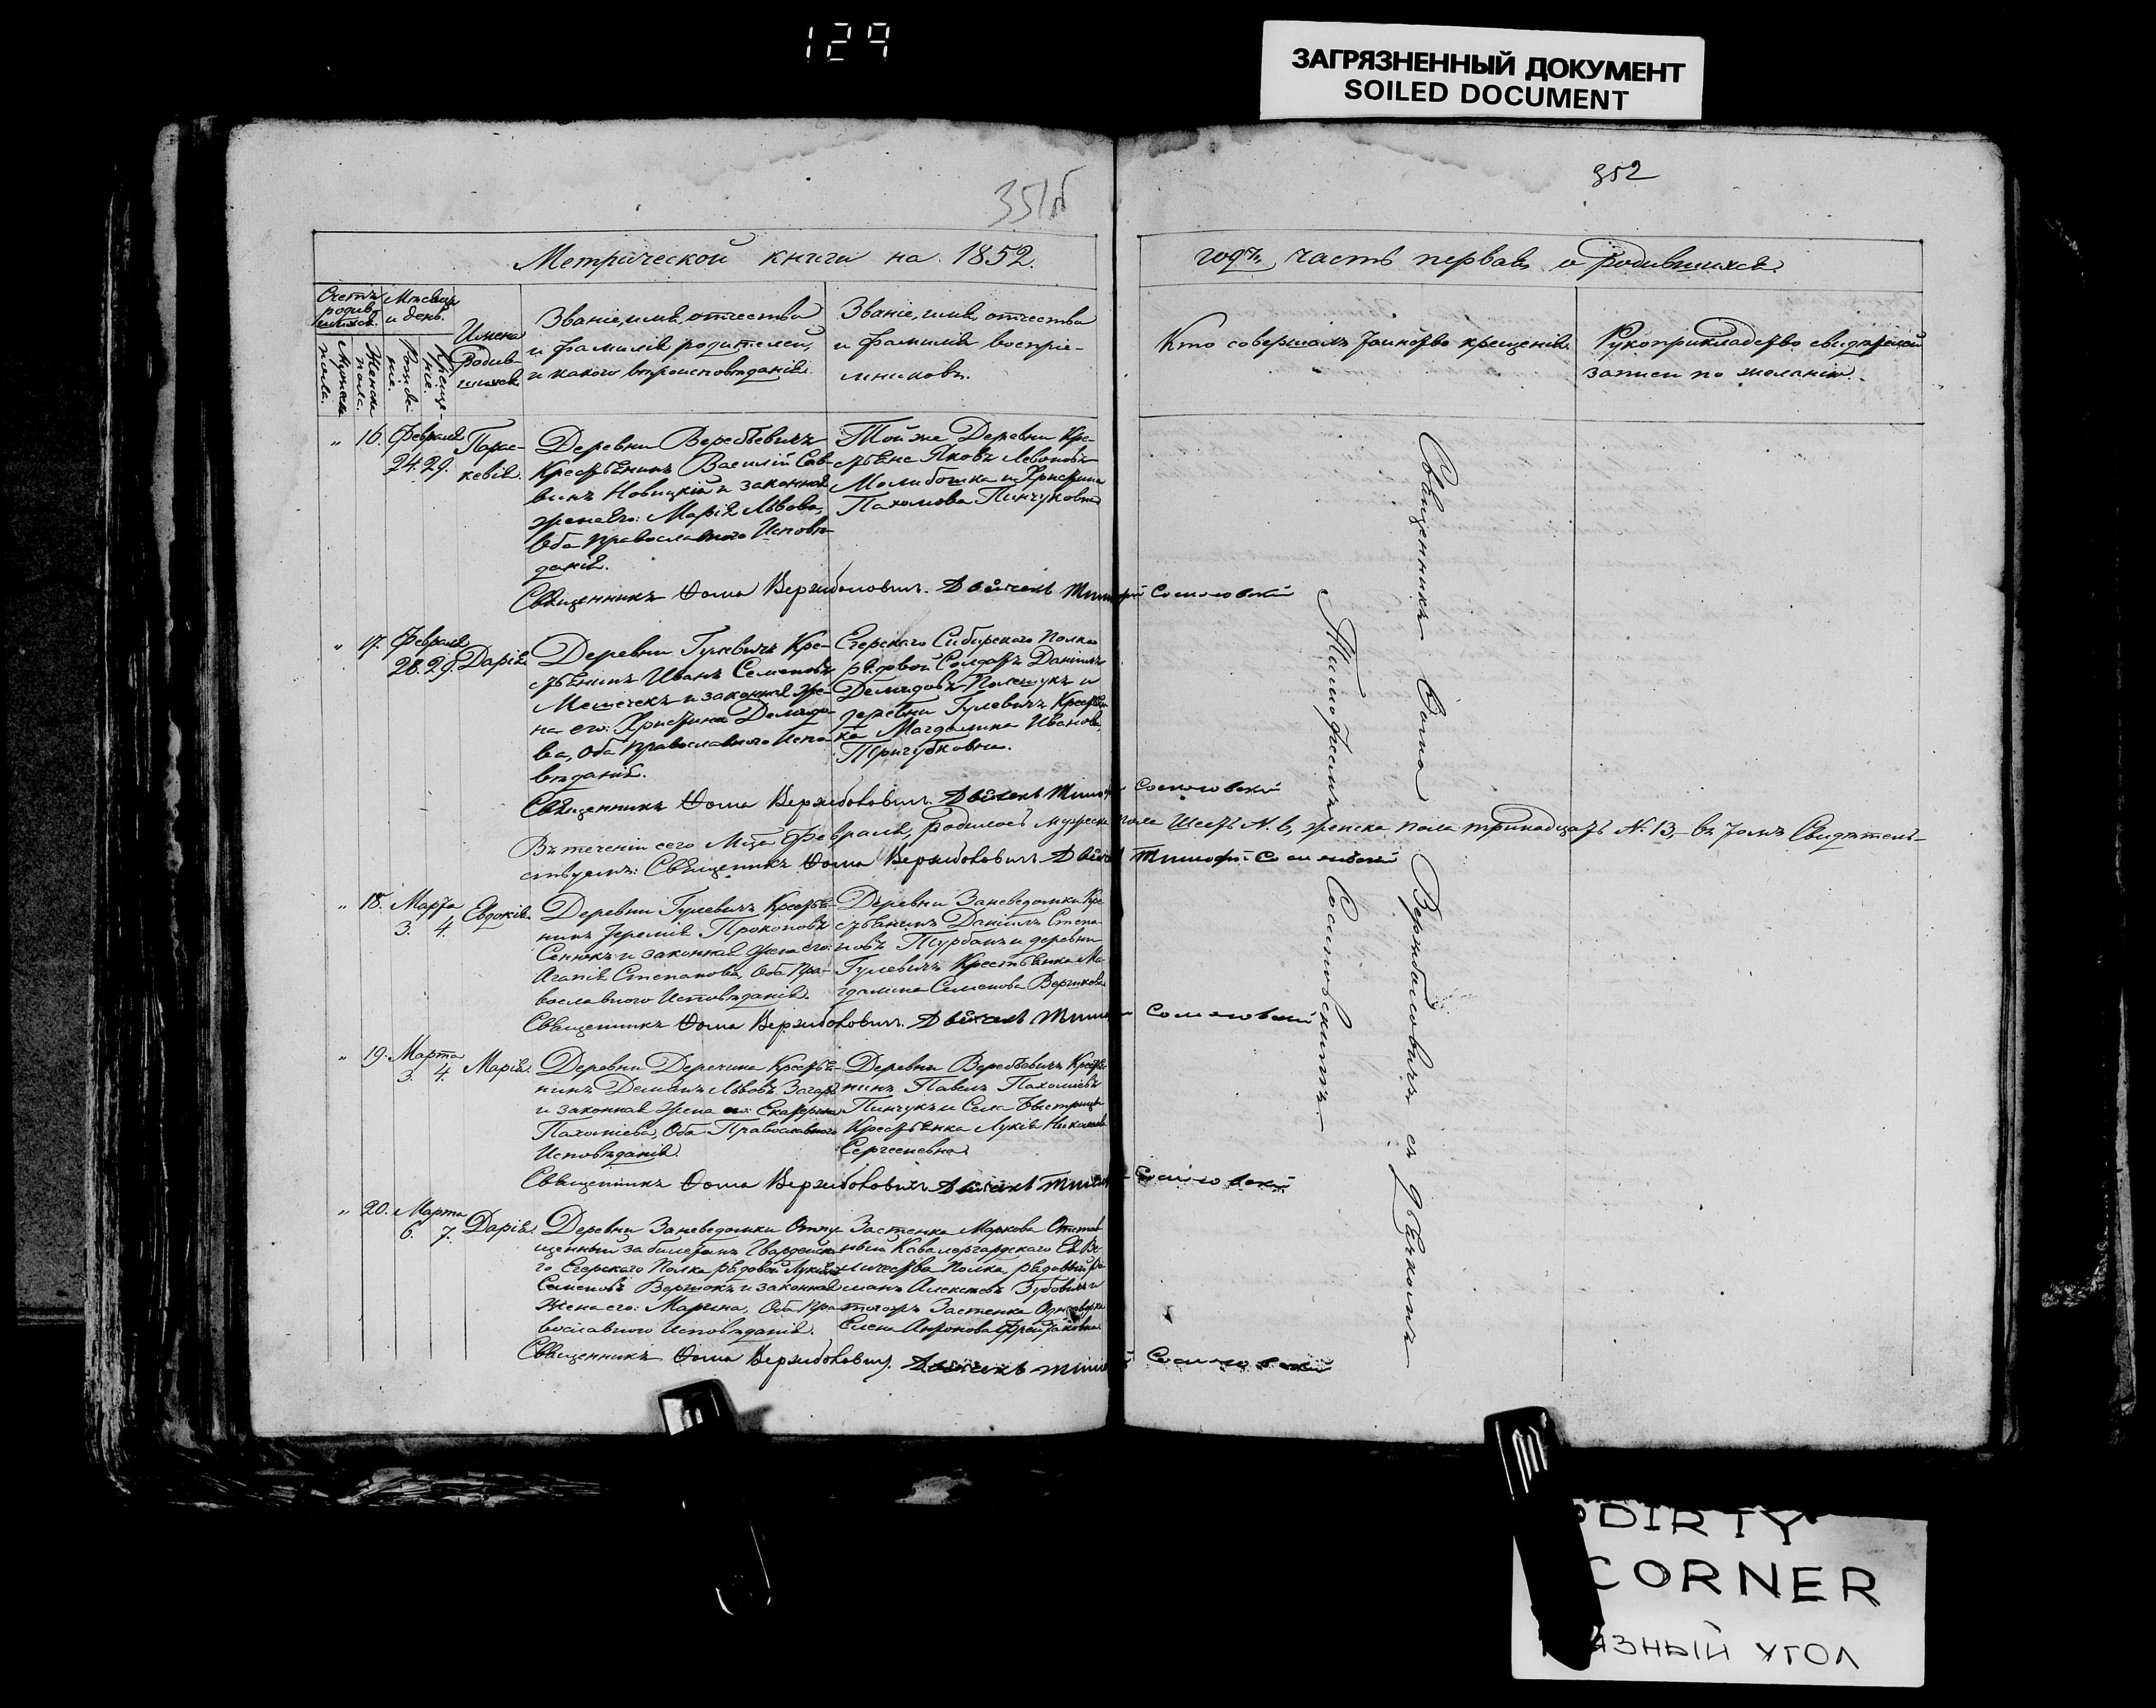 129
ЗАГРЯЗНЕННЫЙ ДОКУМЕНТ
SOILED DOCUMENT
351б
352
Метрической книги на 1852.
годъ, часть первая, о родившихся.
Счетъ родившихся.
Мѣсяцъ и день.
Мужеска пола.
Женска пола.
Рожденіе.
Крещеніе.
Имена родившихся
Званіе, имя, отчество
и фамилія родителей,
и какого вѣроисповѣданія.
Званіе, имя, отчество
и фамилія воспріе-
мниковъ.
Кто совершалъ таинство крещенія.
Рукоприкладство свидѣтелей
записи по желанію.
" 16. Февраля 24. 29.
Парас-
кевія.
Деревни Веребьевичъ
Крестьянинъ Василій Сав-
винъ Новицкій и законная
жена его: Марія Львова,
Оба православнаго Исповѣ-
данія.
Той же Деревни Кре-
стьяне Яковъ Левоновъ
и Христина
Пахомова Пинчуковна
Священникъ Ѳома Вержболовичъ. Дьячекъ Тимофей Сосиновскій
" 17. Февраля 28. 29. Дарія
Деревни Гулевичъ Кре-
стьянинъ Иванъ Семеновъ
и законная же-
на его: Христина Демидо-
ва, Оба православнаго Испо-
вѣданія.
Егерскаго Сибирскаго Полка
рядовой Солдатъ Даніилъ
Демидовъ Полещукъ и
деревни Гулевичъ Крестьян-
ка Магдалина Иванова
Священникъ Ѳома Вержболовичъ. Дьячекъ Тимофей Сосиновскій
Въ теченіи сего Мца Февраля, родилось мужеска пола Шесть N. 6, женска пола тринадцать N. 13, въ томъ Свидѣтель-
ствуемъ: Священникъ Ѳома Вержболовичъ Дьячекъ Тимофей Сосиновскій
" 18. Марта 3. 4. Евдокія
Деревни Гулевичъ Крестья-
нинъ Іеремія Прокоповъ
Сенюкъ и законная жена его:
Агапія Степанова, Оба Пра-
вославнаго Исповѣданія.
Деревни Заневедомки Кре-
стьянинъ Даніилъ Степа-
новъ Турбанъ и деревни
Гулевичъ Крестьянка Ма-
гдалина Семенова
Священникъ Ѳома Вержболовичъ. Дьячекъ Тимофей Сосиновскій
" 19. Марта 3. 4. Марія.
Деревни Деречина Крестья-
нинъ Демьянъ Львовъ
и законная жена его: Екатерина
Пахоміева, Оба Православнаго
Исповѣданія.
Деревни Веребьевичъ Крестья-
нинъ Павелъ Пахоміевъ
Пинчукъ и Села Быстрицы
Крестьянка Лукія
Сергеевна.
Священникъ Ѳома Вержболовичъ Дьячекъ Тимофей Сосиновскій
" 20. Марта 6. 7. Дарія.
Деревни Заневедомки Отпу-
щенный за билетомъ Гвардейска-
го Егерскаго Полка рядовой
Семеновъ и законная
жена его: Марина, Оба Пра-
вославнаго Исповѣданія.
Застенка Маркова Отстав-
ный Кавалергардскаго Ея Ве-
личества Полка рядовый Ро-
манъ Алексѣевъ Зубовичъ и
тогожъ Застенка
Елена Антонова
Священникъ Ѳома Вержболовичъ. Дьячекъ Тимофей Сосиновскій
Священникъ Ѳома Вержболовичъ съ Дьячкомъ
Тимофеемъ Сосиновскимъ
DIRTY
CORNER
ЯЗНЫЙ УГОЛ